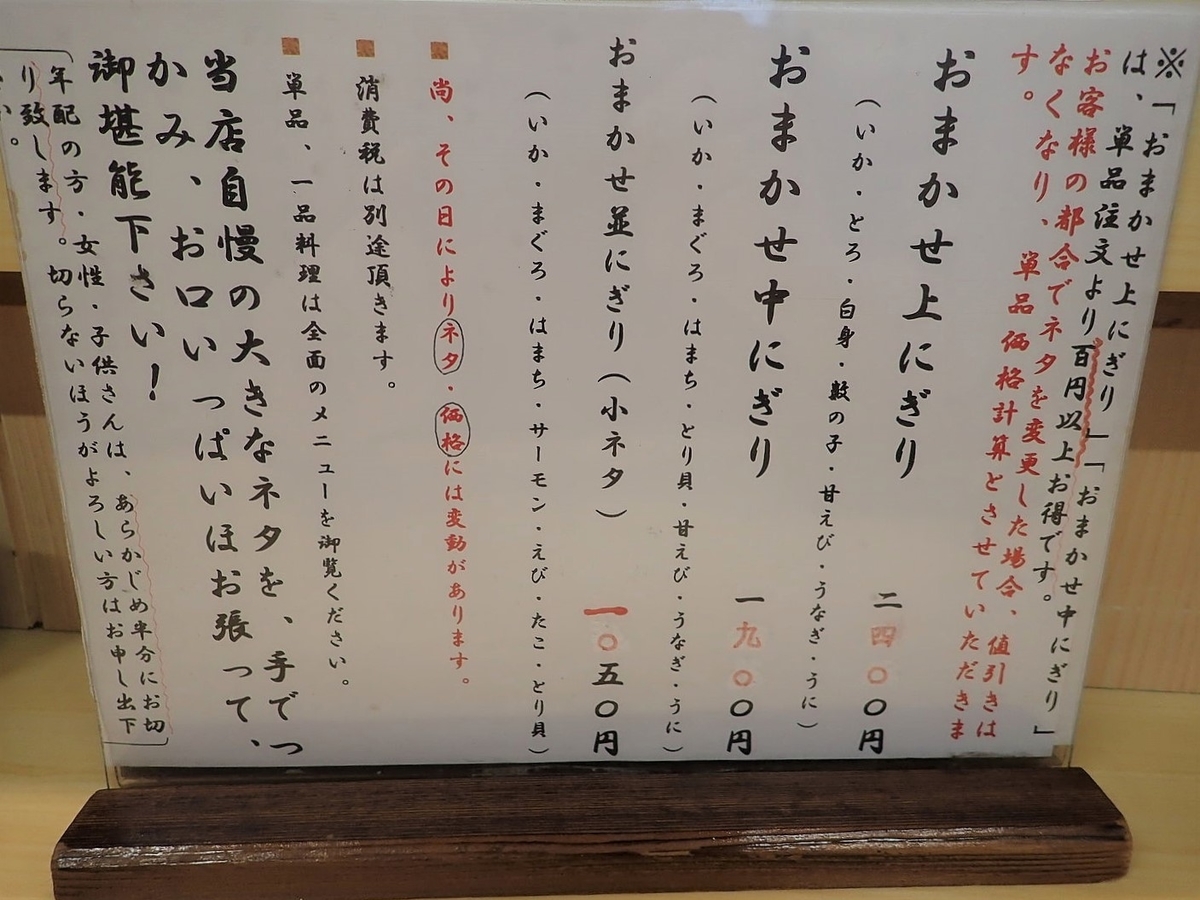 ※「おまかせ上にぎり」「おまかせ中にぎり」
は、単品注文より百円以上お得です。
お客様の都合でネタを変更した場合、値引きは
なくなり、単品価格計算とさせていただきま
す。
おまかせ上にぎり 二四〇〇円
（いか・とろ・白身・数の子・甘えび・うなぎ・うに）
おまかせ中にぎり 一九〇〇円
（いか・まぐろ・はまち・とり貝・甘えび・うなぎ・うに）
おまかせ並にぎり（小ネタ） 一〇五〇円
（いか・まぐろ・はまち・サーモン・えび・たこ・とり貝）
■尚、その日によりネタ・価格には変動があります。
■消費税は別途頂きます。
■単品、一品料理は全面のメニューを御覧ください。
当店自慢の大きなネタを、手でつ
かみ、お口いっぱいほお張って、
御堪能下さい！
年配の方・女性・子供さんは、あらかじめ半分にお切
り致します。切らないほうがよろしい方はお申し出下
い。